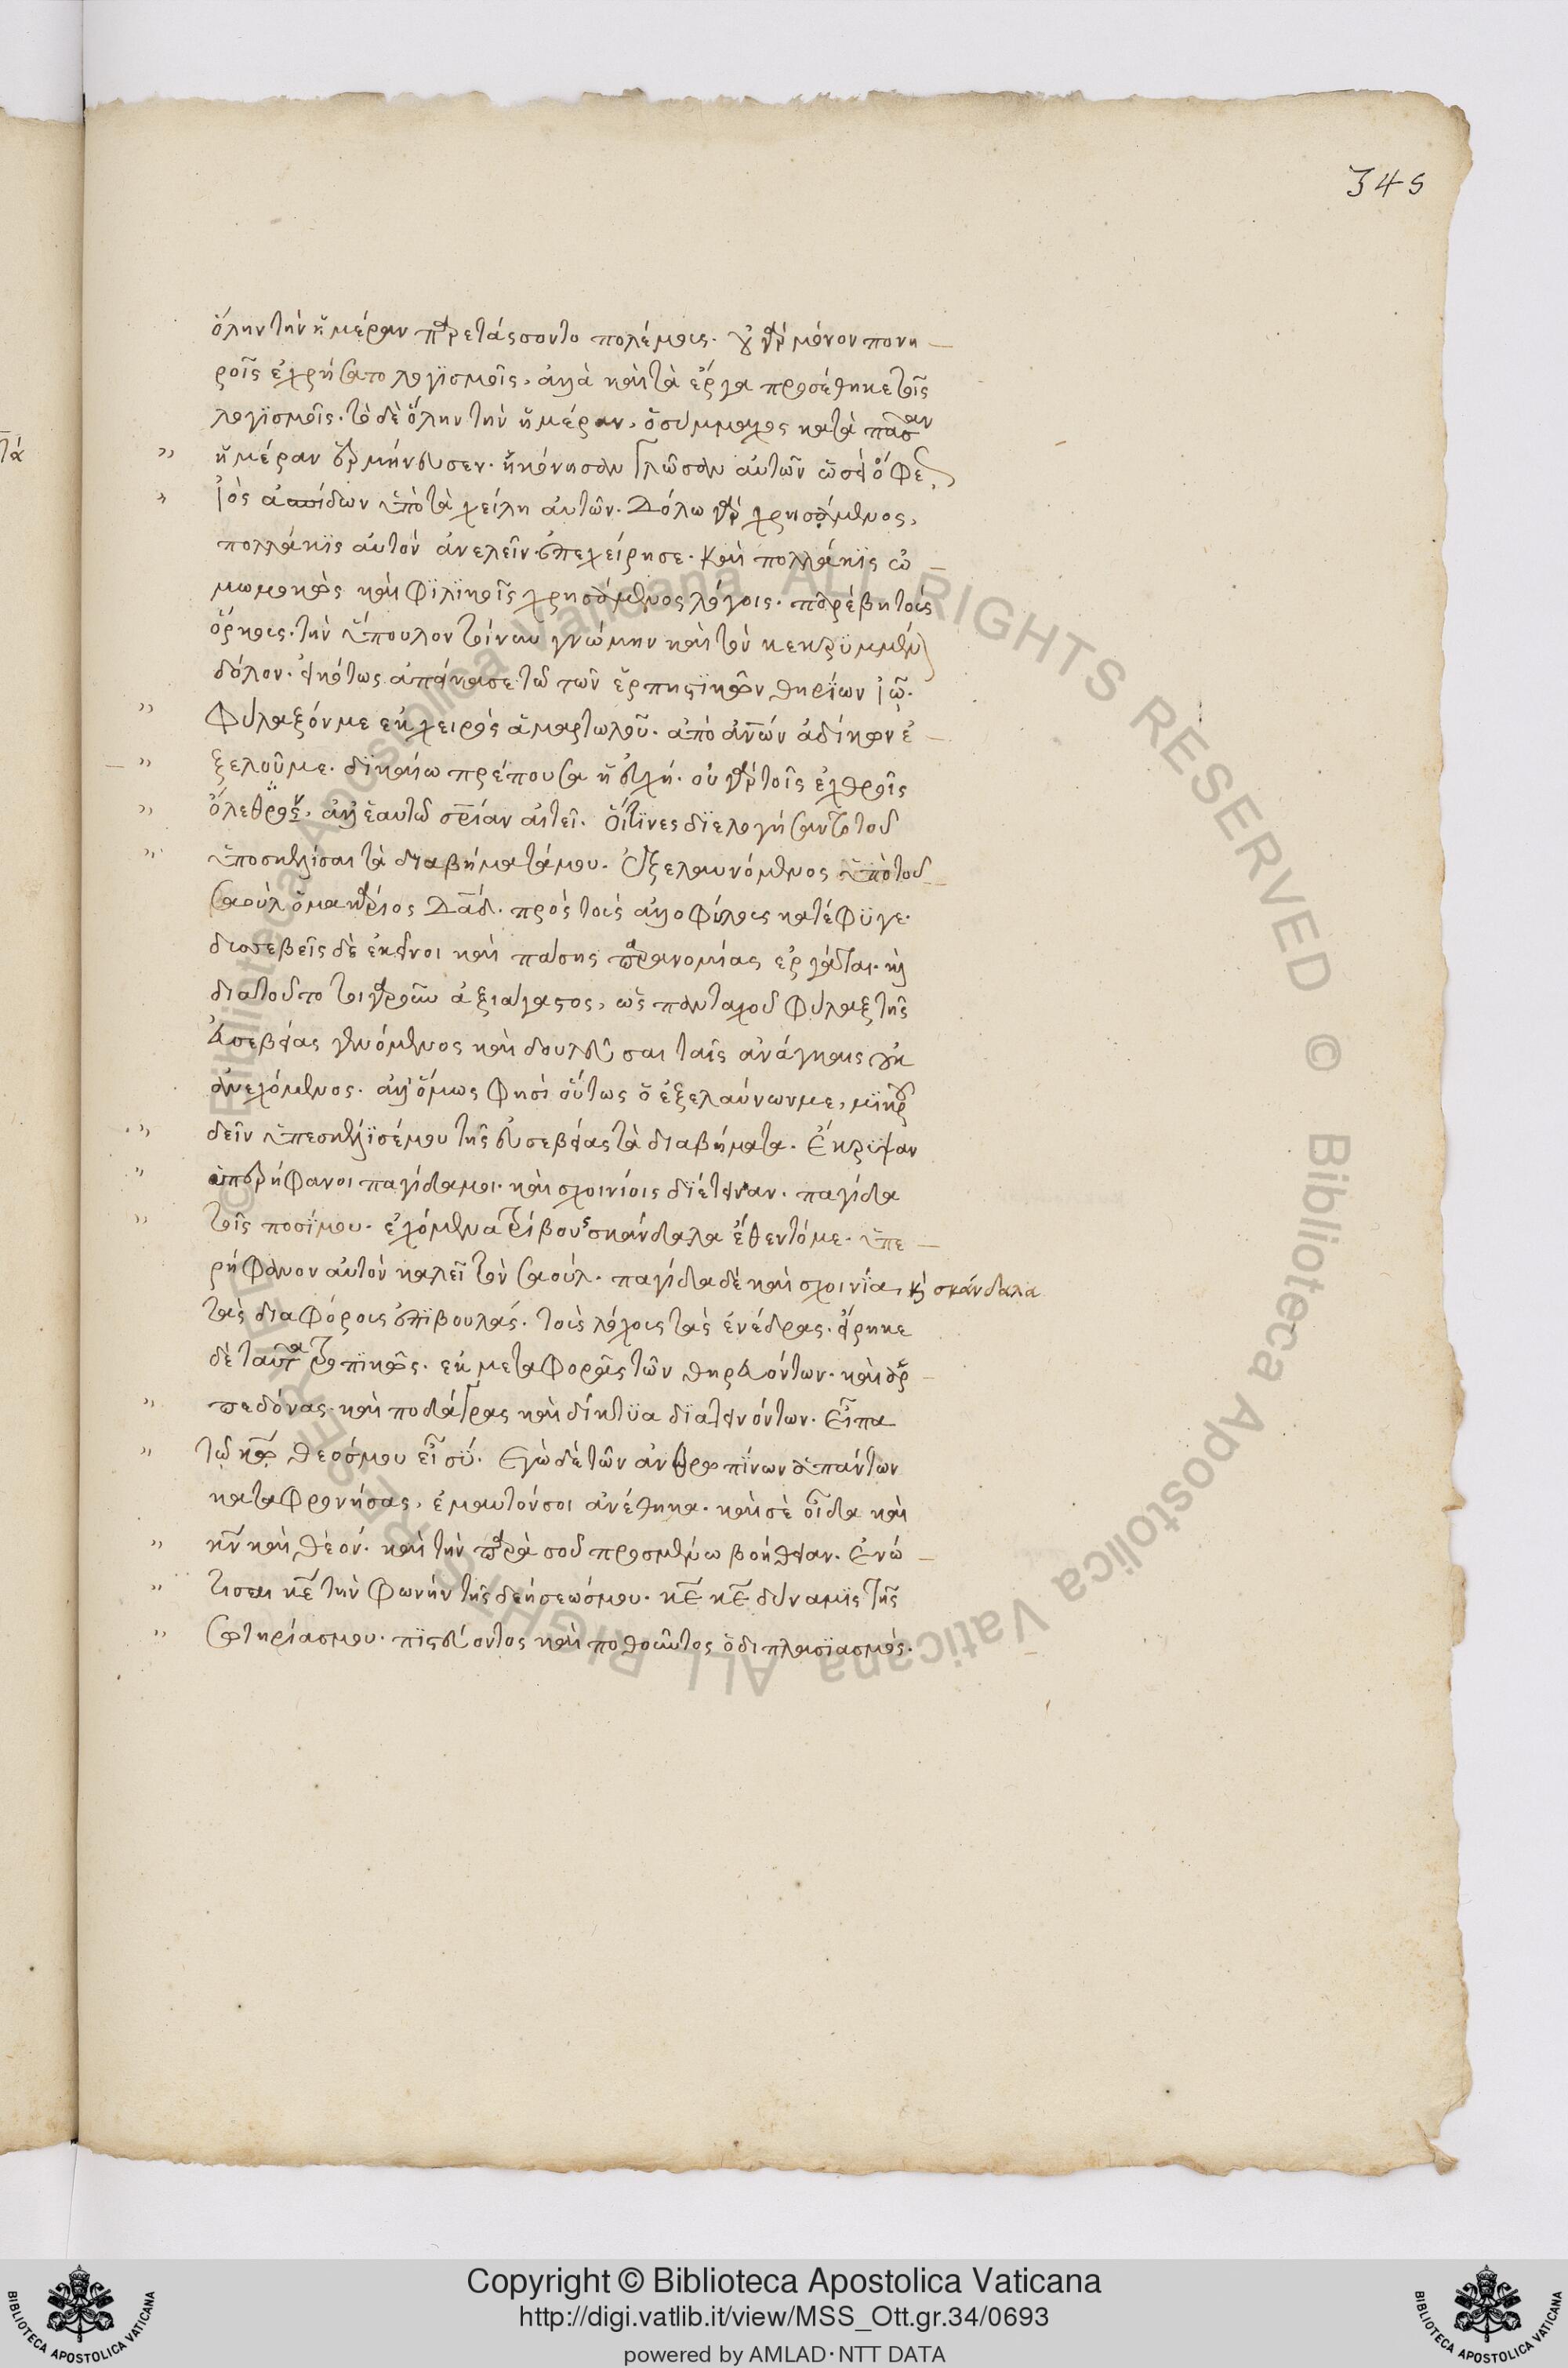 345
ὅλην τὴν ἡμέραν παρετάσσοντο πολέμοις. οὐ γὰρ μόνον πονη
ροῖς ἐχρήσατο λογϊσμοῖς, ἀλλὰ καὶ τὰ ἔργα προσέθηκε τοῖς
λογϊσμοῖς. τὸ δὲ ὅλην τὴν ἡμέραν, ὁ σύμμαχος κατὰ πᾶσαν
τά
ἡμέραν ἡρμήνευσεν. ἠκόνησαν γλῶσσαν αὐτῶν ὡσεὶ ὄφε
ἰὸς ἀσπίδων ὑπὸ τὰ χείλη αὐτῶν. Δόλω γὰρ χρησάμενος,
πολλάκϊς αὐτὸν ἀνελεῖν ἐπεχείρησε. καὶ πολλάκϊς ὀ
μωμοκὼς καὶ φϊλϊκοῖς χρησάμενος λόγοις. παρέβη τοὺς
ὅρκους. τὴν ὕπουλον τοίνυν γνώμην καὶ τὸν κεκρϋμμένον
δόλον. εἰκότως ἀπείκασε τῶ τῶν ἑρπηστϊκῶν θηρίων ἰῶ.
Φύλαξόν με ἐκ χειρὸς ἁμαρτωλοῦ. ἀπὸ ἀνῶν ἀδίκων ἐ
ξελοῦ με. δϊκαίω πρέπουσα ἡ εὐχή. οὐ γὰρ τοῖς ἐχθροῖς
ὄλεθρον, ἀλλ' ἑαυτῶ σρίαν αἰτεῖ. Οἵτϊνες δϊελογήσαντο τοῦ
ὑποσκελίσαι τὰ διαβήματά μου. Ἐξελαυνόμενος ὑπὸ τοῦ
Σαοὺλ ὁ μακάριος Δαδ. πρὸς τοὺς ἀλλοφύλους κατέφϋγε.
δυσσεβεῖς δὲ ἐκεῖνοι καὶ πάσης παρανομίας ἐργάται. καὶ
διὰ τοῦτο τοιγαροῦν ἀξιάγαστος, ὡς πανταχοῦ φύλαξ τῆς
εὐσεβείας γενόμενος καὶ δουλεῦσαι ταῖς ἀνάγκαις οὐκ
ἀνεχόμενος. ἀλλ' ὅμως φησὶ οὕτως ὁ ἐξελαύνων με, μϊκροῦ
δεῖν ὑπεσκέλϊσέ μου τῆς εὐσεβείας τὰ διαβήματα. Ἔκρϋψαν
ὑπερήφανοι παγίδα μοι. καὶ σχοινίοις δϊέτειναν. παγίδα
τοῖς ποσί μου. ἐχόμενα τρίβους σκάνδαλα ἔθεντό με. ὑπε
ρήφανον αὐτὸν καλεῖ τὸν Σαούλ. παγίδα δὲ καὶ σχοινία, καὶ σκάνδαλα
τὰς διαφόροις ἐπϊβουλάς. τοὺς λόχους τὰς ἐνέδρας. εἴρηκε
δὲ ταῦτα τροπϊκῶς. ἐκ μεταφορᾶς τῶν θηρευόντων. καὶ ἁρ
πεδόνας. καὶ ποδάγρας καὶ δίκτϋα δϊατεινόντων. Εἶπα
τῶ κῶ θεός μου εἶ σύ. Ἐγὼ δὲ τῶν ἀνθρωπίνων ἁπάντων
καταφρονήσας, ἐμαυτόν σοι ἀνέθηκα. καὶ σὲ οἶδα καὶ
κν καὶ θεόν. καὶ τὴν παρὰ σοῦ προσμένω βοήθειαν. Ἐνώ
τισαι κε τὴν φωνὴν τῆς δεήσεώς μου. κε κε δύναμϊς τῆς
σωτηρίας μου. πϊστεύοντος καὶ ποθοῦντος ὁ διπλασϊασμός.
Copyright © Biblioteca Apostolica Vaticana
http://digi.vatlib.it/view/MSS_Ott.gr.34/0693
powered by AMLAD·NTT DATA